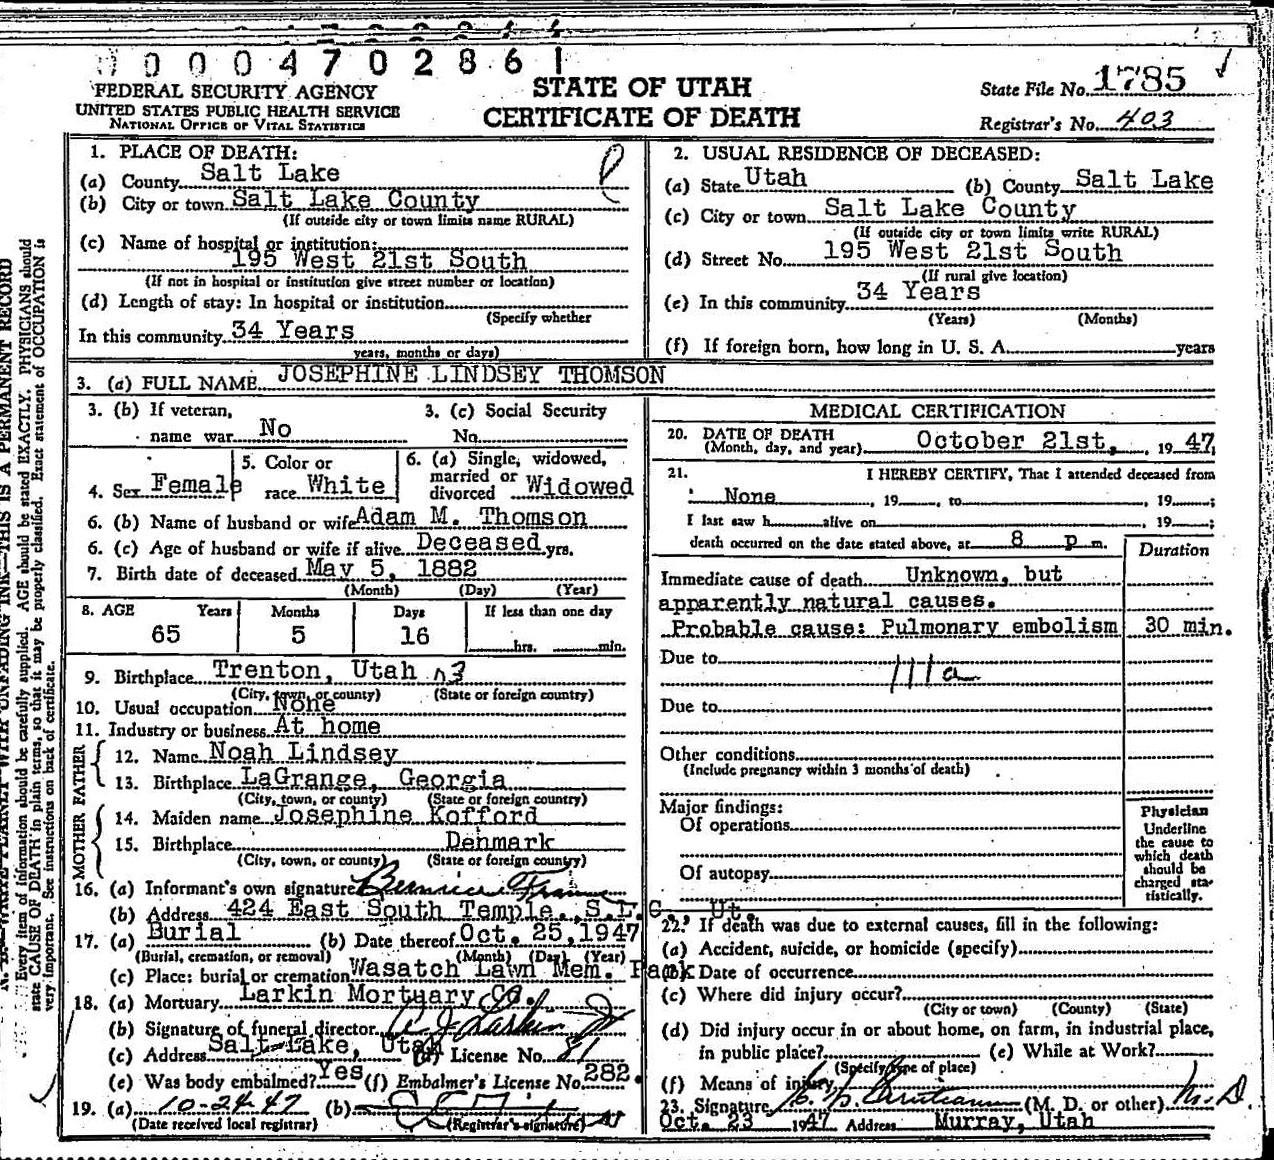 0 0 0 0 4 7 0 2 8 6 1
FEDERAL SECURITY AGENCY
UNITED STATES PUBLIC HEALTH SERVICE
NATIONAL OFFICE OF VITAL STATISTICS
STATE OF UTAH
CERTIFICATE OF DEATH
State File No. 1785
Registrar's No. 403
1. PLACE OF DEATH:
(a) County Salt Lake
(b) City or town Salt Lake County
(If outside city or town limits name RURAL)
(c) Name of hospital or institution:
195 West 21st South
(If not in hospital or institution give street number or location)
(d) Length of stay: In hospital or institution
(Specify whether
In this community 34 Years
years, months or days)
2. USUAL RESIDENCE OF DECEASED:
(a) State Utah (b) County Salt Lake
(c) City or town Salt Lake County
(If outside city or town limits write RURAL)
(d) Street No. 195 West 21st South
(If rural give location)
(e) In this community 34 Years
(Years) (Months)
(f) If foreign born, how long in U. S. A. years
3. (a) FULL NAME JOSEPHINE LINDSEY THOMSON
3. (b) If veteran, 3. (c) Social Security
name war No No.
4. Sex Female 5. Color or race White 6. (a) Single, widowed, married or divorced Widowed
6. (b) Name of husband or wife Adam M. Thomson
6. (c) Age of husband or wife if alive Deceased yrs.
7. Birth date of deceased May 5, 1882
(Month) (Day) (Year)
8. AGE Years Months Days If less than one day
65 5 16 hrs. min.
9. Birthplace Trenton, Utah
(City, town, or county) (State or foreign country)
10. Usual occupation None
11. Industry or business At home
FATHER
12. Name Noah Lindsey
13. Birthplace LaGrange, Georgia
(City, town, or county) (State or foreign country)
MOTHER
14. Maiden name Josephine Kofford
15. Birthplace Denmark
(City, town, or county) (State or foreign country)
16. (a) Informant's own signature Bernice
(b) Address 424 East South Temple., S.L.C., Ut.
17. (a) Burial (b) Date thereof Oct. 25, 1947
(Burial, cremation, or removal) (Month) (Day) (Year)
(c) Place: burial or cremation Wasatch Lawn Mem. Park
18. (a) Mortuary Larkin Mortuary Co.
(b) Signature of funeral director A J Larkin Jr
(c) Address Salt Lake, Utah (d) License No. 81
(e) Was body embalmed? Yes (f) Embalmer's License No. 282.
19. (a) 10-24-47 (b)
(Date received local registrar) (Registrar's signature)
MEDICAL CERTIFICATION
20. DATE OF DEATH October 21st, 1947
(Month, day, and year)
21. I HEREBY CERTIFY, That I attended deceased from
None, 19 , to , 19 ;
I last saw h alive on , 19 ;
death occurred on the date stated above, at 8 p m.
Duration
Immediate cause of death Unknown, but
apparently natural causes.
Probable cause: Pulmonary embolism 30 min.
Due to
111a
Due to
Other conditions
(Include pregnancy within 3 months of death)
Major findings:
Of operations
Of autopsy
Physician
Underline
the cause to
which death
should be
charged sta-
tistically.
22. If death was due to external causes, fill in the following:
(a) Accident, suicide, or homicide (specify)
(b) Date of occurrence
(c) Where did injury occur?
(City or town) (County) (State)
(d) Did injury occur in or about home, on farm, in industrial place,
in public place? (e) While at Work?
(Specify type of place)
(f) Means of injury
23. Signature (M. D. or other) M.D.
Oct. 23 1947 Address Murray, Utah
THIS IS A PERMANENT RECORD
Every item of information should be carefully supplied. AGE should be stated EXACTLY. PHYSICIANS should
state CAUSE OF DEATH in plain terms, so that it may be properly classified. Exact statement of OCCUPATION is
very important. See instructions on back of certificate.